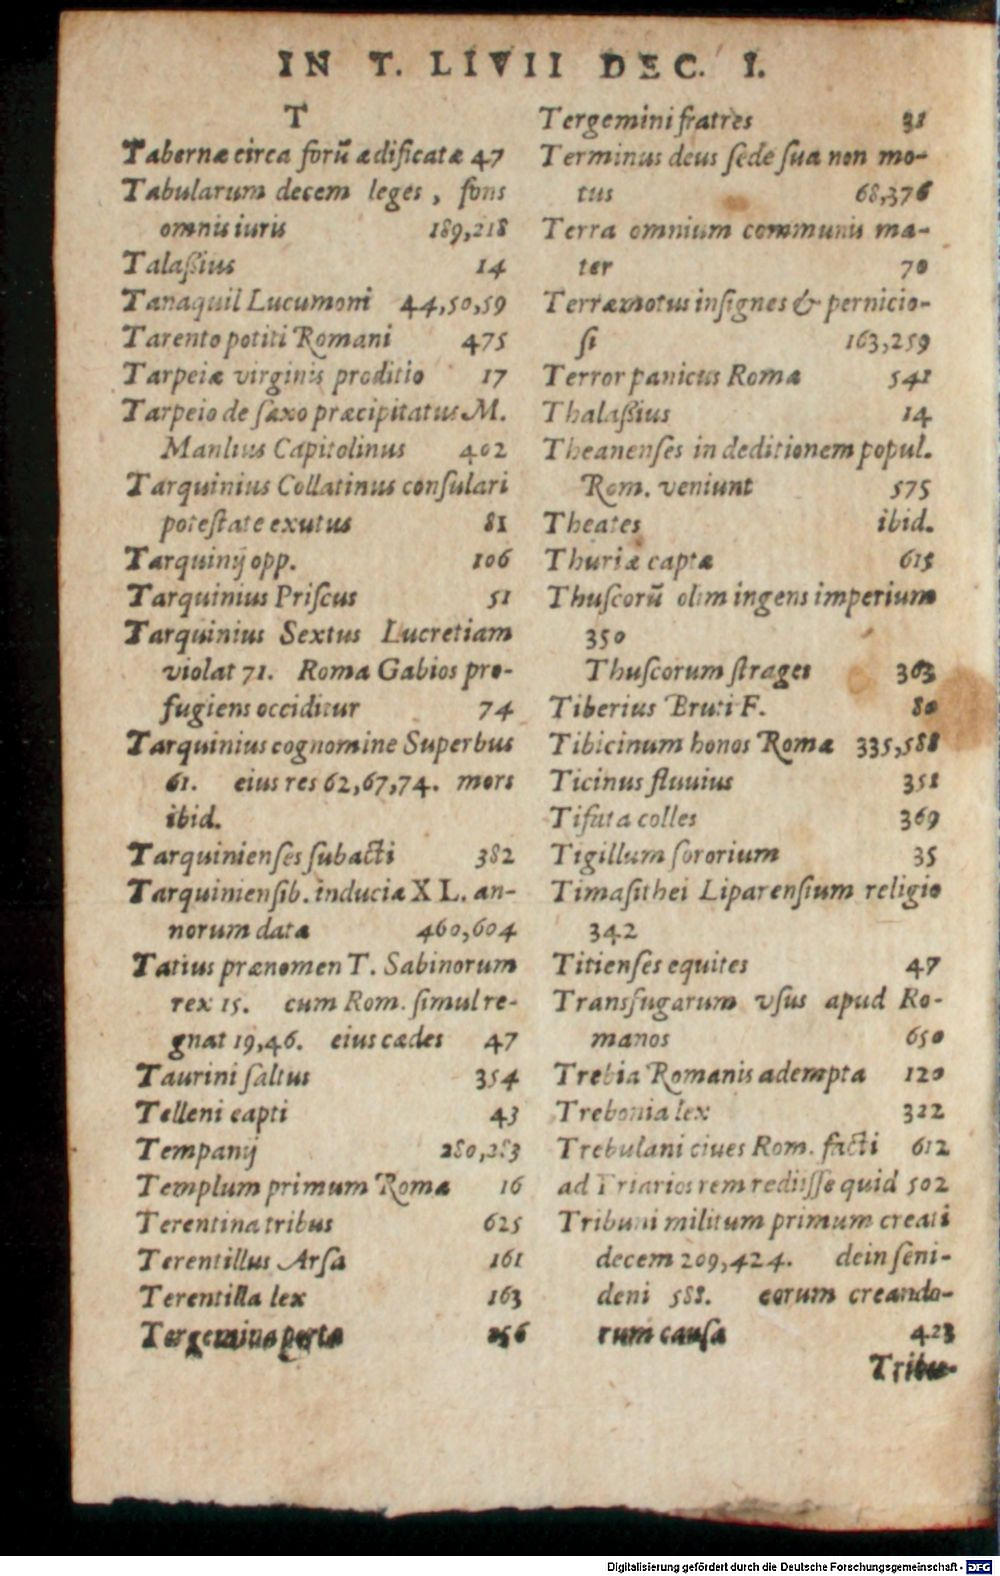 IN T. LIVII DEC. I.
T
Tabernæ circa forũ ædificatæ 47
Tabularum decem leges, fons
omnis iuris 189,218
Talaßius 14
Tanaquil Lucumoni 44,50,59
Tarento potiti Romani 475
Tarpeiæ virginis proditio 17
Tarpeio de ſaxo præcipitatus M.
Manlius Capitolinus 402
Tarquinius Collatinus conſulari
poteſtate exutus 81
Tarquinij opp. 106
Tarquinius Priſcus 51
Tarquinius Sextus Lucretiam
violat 71. Roma Gabios pro-
fugiens occiditur 74
Tarquinius cognomine Superbus
61. eius res 62,67,74. mors
ibid.
Tarquinienſes ſubacti 382
Tarquinienſib. induciæ XL. an-
norum datæ 460,604
Tatius prænomen T. Sabinorum
rex 15. cum Rom. ſimul re-
gnat 19,46. eius cædes 47
Taurini ſaltus 354
Telleni capti 43
Tempanij 280,283
Templum primum Romæ 16
Terentina tribus 625
Terentillus Arſa 161
Terentilla lex 163
Tergemina porta 256
Tergemini fratres 31
Terminus deus ſede ſua non mo-
tus 68,376
Terra omnium communis ma-
ter 70
Terræmotus inſignes & pernicio-
ſi 163,259
Terror panicus Romæ 541
Thalaßius 14
Theanenſes in deditionem popul.
Rom. veniunt 575
Theates ibid.
Thuriæ captæ 615
Thuſcorũ olim ingens imperium
350
Thuſcorum ſtrages 363
Tiberius Bruti F. 80
Tibicinum honos Romæ 335,588
Ticinus fluuius 351
Tifata colles 369
Tigillum ſororium 35
Timaſithei Liparenſium religio
342
Titienſes equites 47
Transfugarum vſus apud Ro-
manos 650
Trebia Romanis adempta 120
Trebonia lex 322
Trebulani ciues Rom. facti 612
ad Triarios rem rediiſſe quid 502
Tribuni militum primum creati
decem 209,424. dein ſeni-
deni 588. eorum creando-
rum cauſa 423
Tribu-
Digitalisierung gefördert durch die Deutsche Forschungsgemeinschaft - DFG